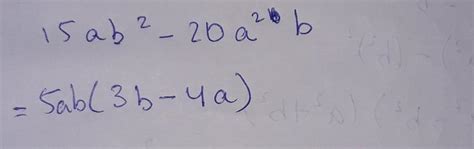 15ab² - 20a²b
= 5ab(3b - 4a)